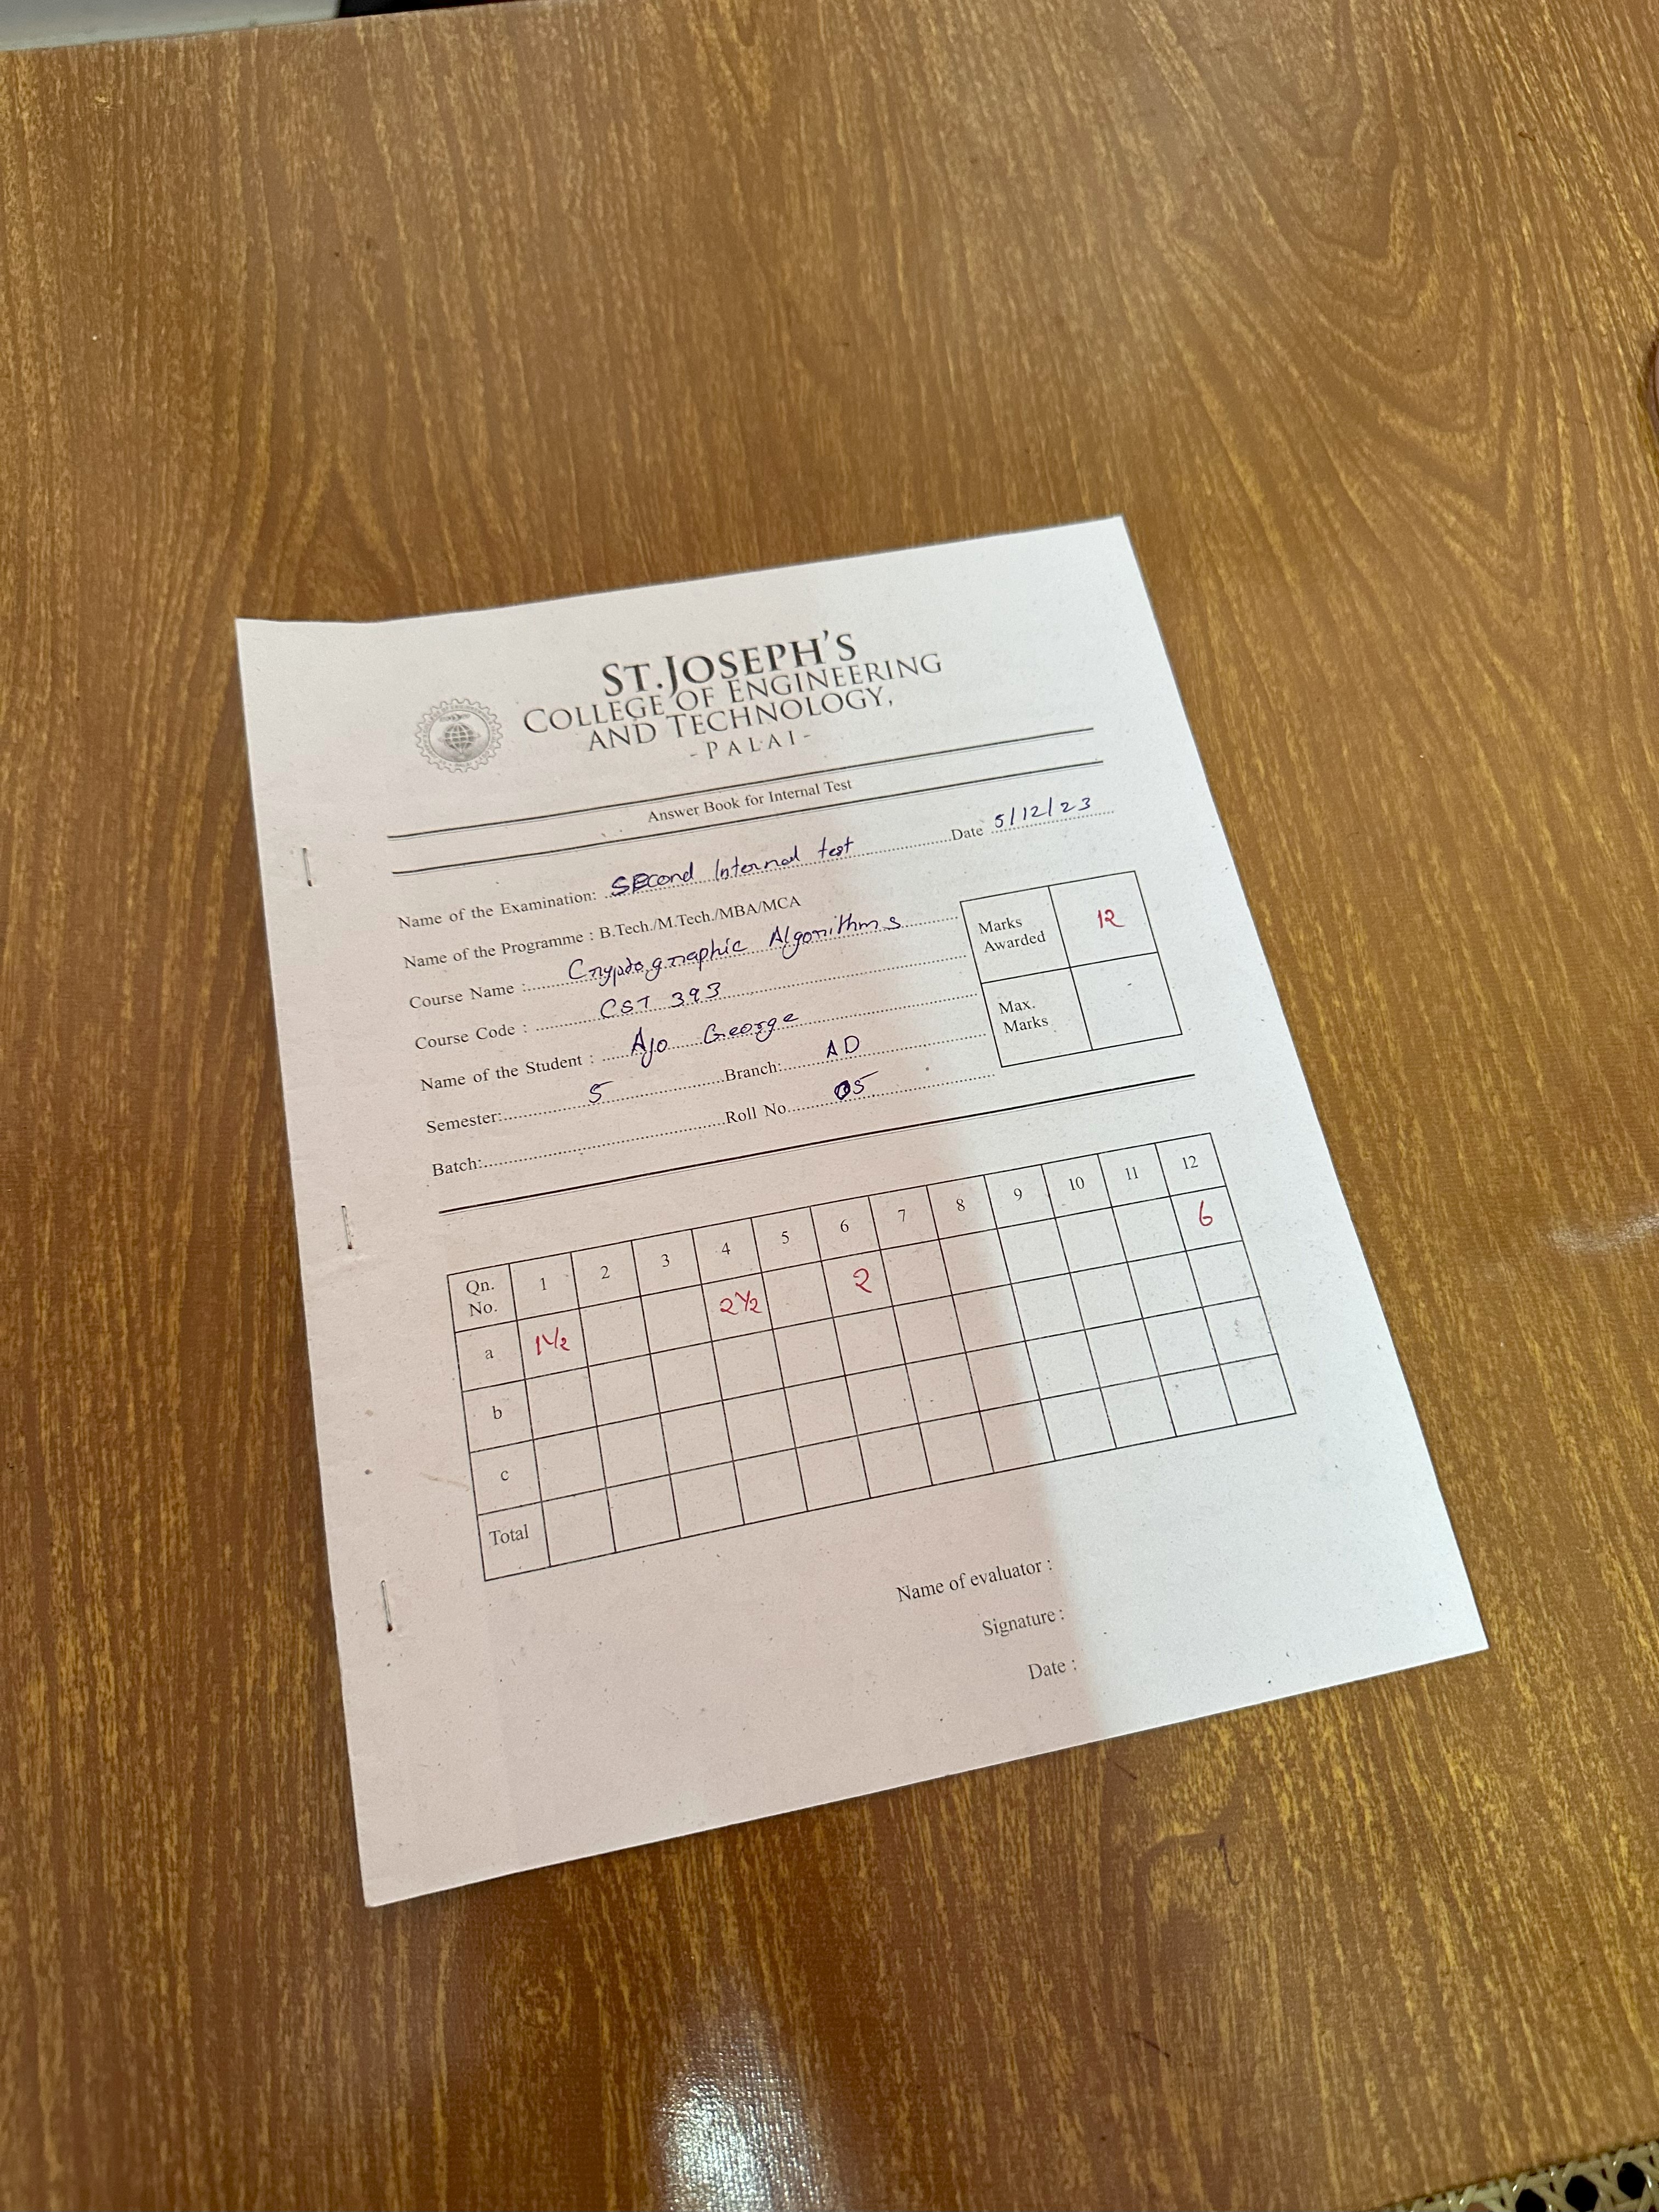 ST.JOSEPH'S
COLLEGE OF ENGINEERING
AND TECHNOLOGY,
-PALAI-
Answer Book for Internal Test
Name of the Examination: SEcond Internal test Date 5/12/23
Name of the Programme : B.Tech./M.Tech./MBA/MCA
Course Name : Cryptographic Algorithms
Course Code : CST 393
Name of the Student : Ajo George
Semester: 5 Branch: AD
Batch: Roll No. 05
Marks Awarded 12
Max. Marks
Qn. No. 1 2 3 4 5 6 7 8 9 10 11 12
a 1½ 2½ 2 6
b
c
Total
Name of evaluator :
Signature :
Date :